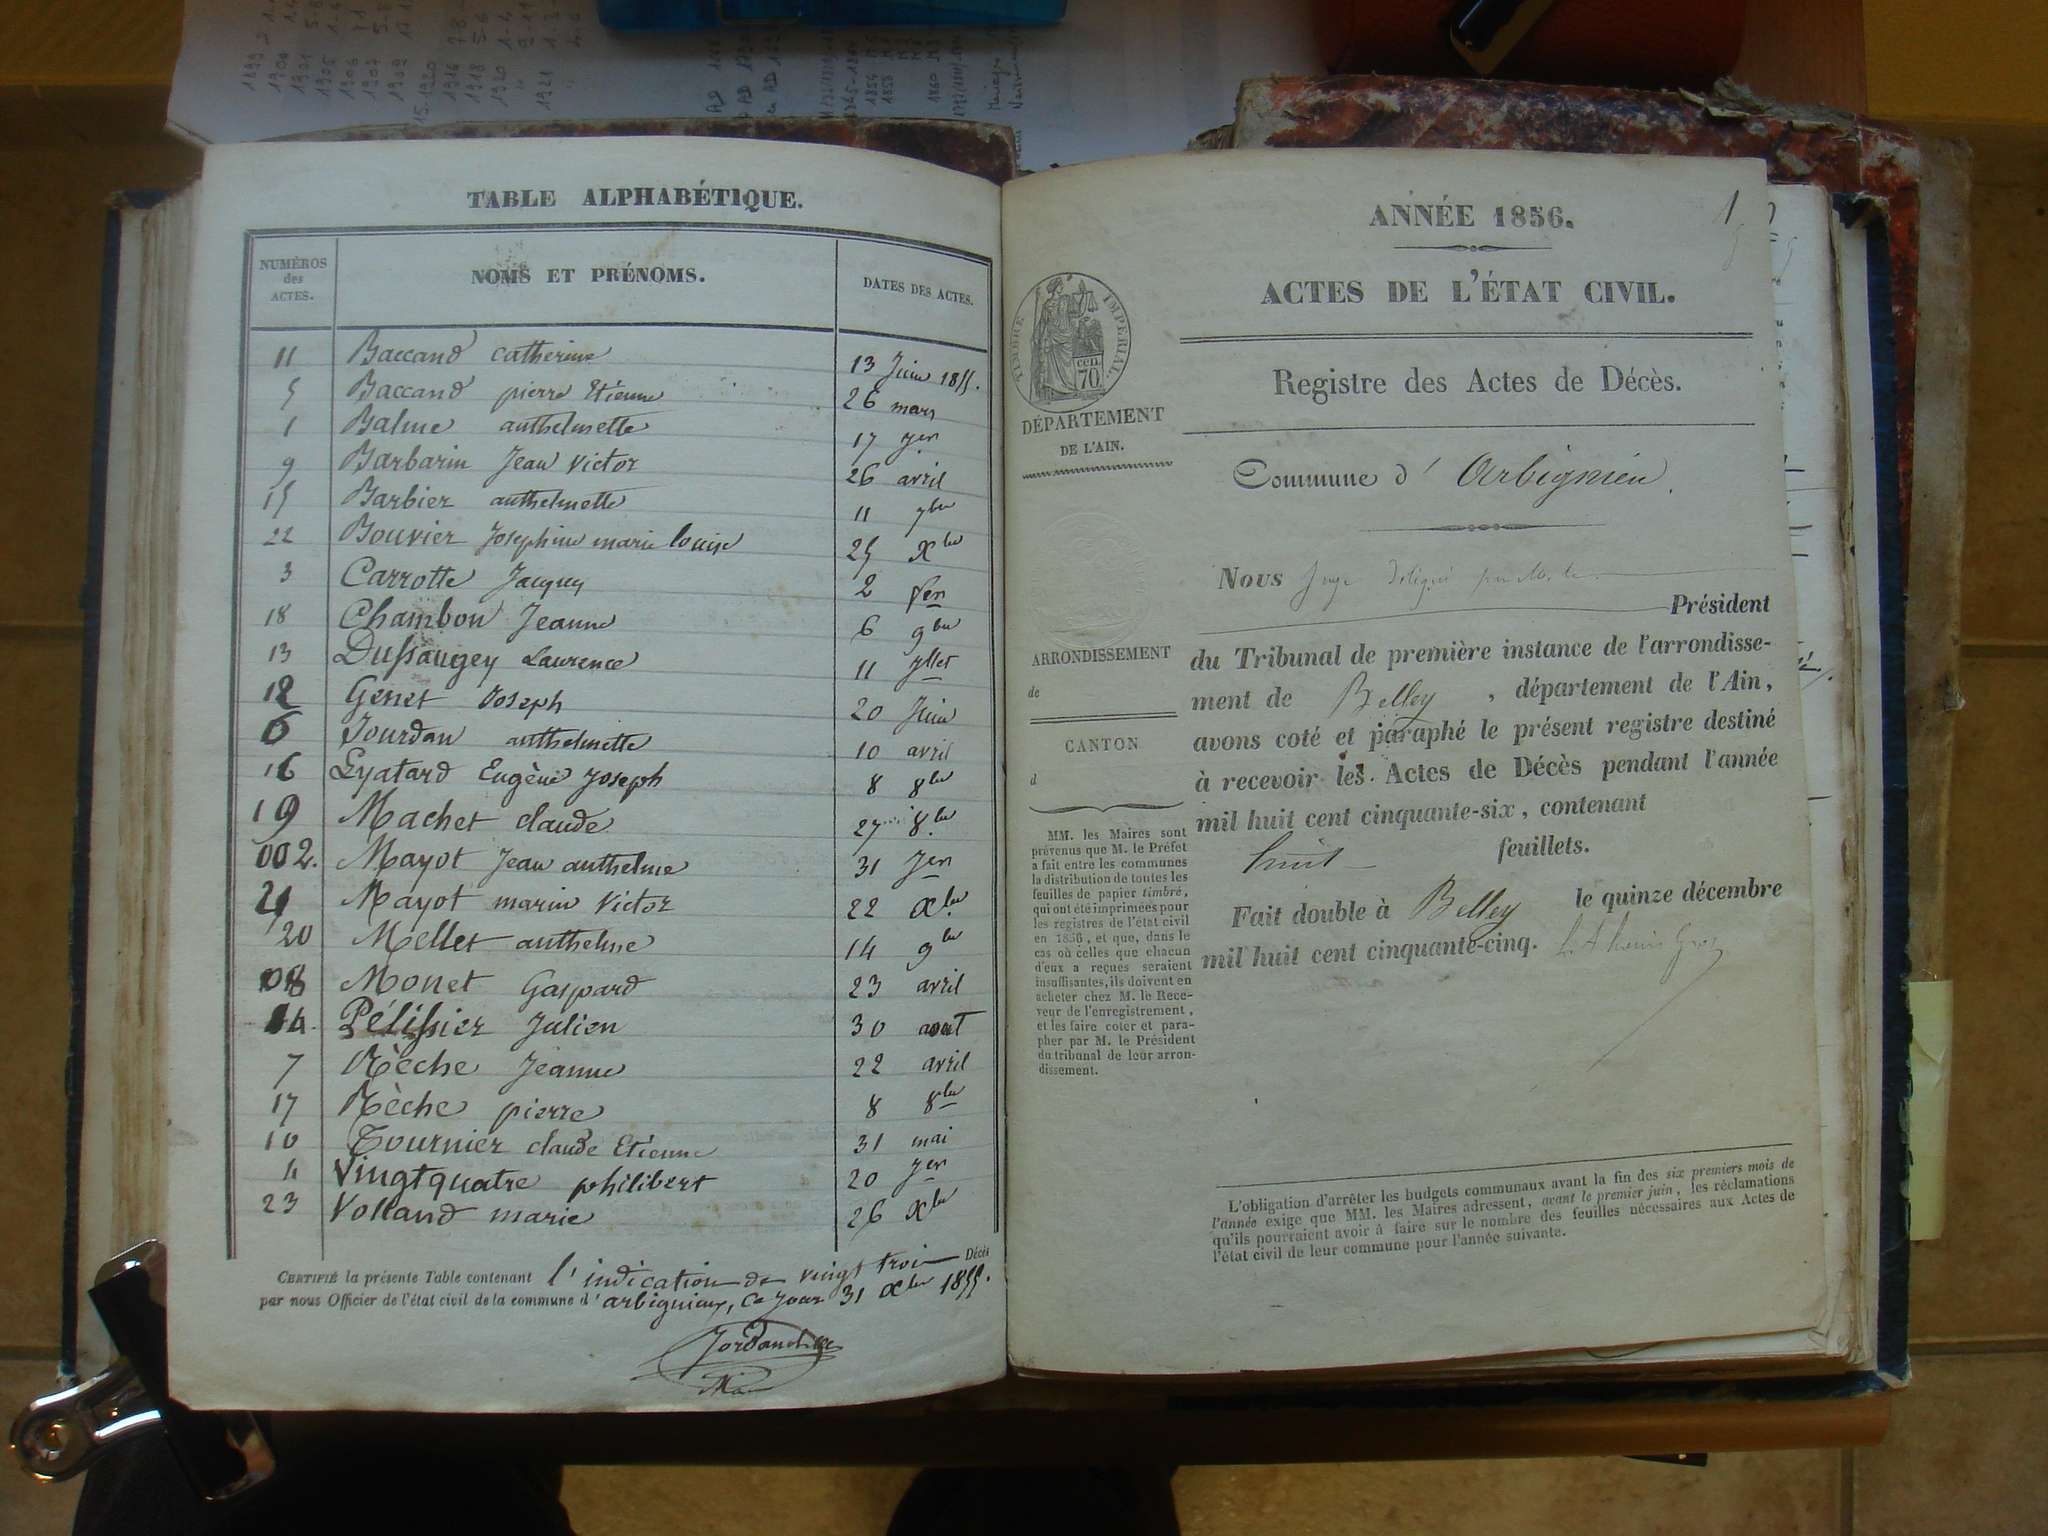 TABLE ALPHABÉTIQUE.
NUMÉROS des ACTES. NOMS ET PRÉNOMS. DATES DES ACTES.
11 Baccand Catherine 13 Juin 1855.
5 Baccand pierre Etienne 26 mars
1 Balme anthelmette 17 Jer
9 Barbarin Jean Victor 26 avril
15 Barbier anthelmette 11 7bre
22 Bouvier Josephine marie louise 25 Xbre
3 Carrotte Jacques 2 fer
18 Chambon Jeanne 6 9bre
13 Dussaugey Laurence 11 Jllet
12 Genet Joseph 20 Juin
6 Jourdan anthelmette 10 avril
16 Lyatard Eugène Joseph 8 8bre
19 Machet claude 27 8bre
002. Mayot Jean anthelme 31 Jer
21 Mayot marin Victor 22 Xbre
20 Mellet anthelme 14 9bre
08 Monet Gaspard 23 avril
14. Pélissier Julien 30 aout
7 Rèche Jeanne 22 avril
17 Rèche pierre 8 8bre
10 Tournier claude Etienne 31 mai
4 Vingtquatre philibert 20 Jer
23 Volland marie 26 Xbre
CERTIFIÉ la présente Table contenant l'indication de vingt trois Décès
par nous Officier de l'état civil de la commune d'arbignieux, ce jour 31 Xbre 1855.
ANNÉE 1856.
1
ACTES DE L'ÉTAT CIVIL.
Registre des Actes de Décès.
TIMBRE IMPÉRIAL
cen. 70
DÉPARTEMENT
DE L'AIN.
Commune d'Arbignieu.
Nous Juge délégué par Mr le
Président
du Tribunal de première instance de l'arrondisse-
ment de Belley, département de l'Ain,
avons coté et paraphé le présent registre destiné
à recevoir les Actes de Décès pendant l'année
mil huit cent cinquante-six, contenant
huit feuillets.
Fait double à Belley le quinze décembre
mil huit cent cinquante-cinq.
ARRONDISSEMENT
de
CANTON
d
MM. les Maires sont
prévenus que M. le Préfet
a fait entre les communes
la distribution de toutes les
feuilles de papier timbré,
qui ont été imprimées pour
les registres de l'état civil
en 1856, et que, dans le
cas où celles que chacun
d'eux a reçues seraient
insuffisantes, ils doivent en
acheter chez M. le Rece-
veur de l'enregistrement,
et les faire coter et para-
pher par M. le Président
du tribunal de leur arron-
dissement.
L'obligation d'arrêter les budgets communaux avant la fin des six premiers mois de
l'année exige que MM. les Maires adressent, avant le premier juin, les réclamations
qu'ils pourraient avoir à faire sur le nombre des feuilles nécessaires aux Actes de
l'état civil de leur commune pour l'année suivante.